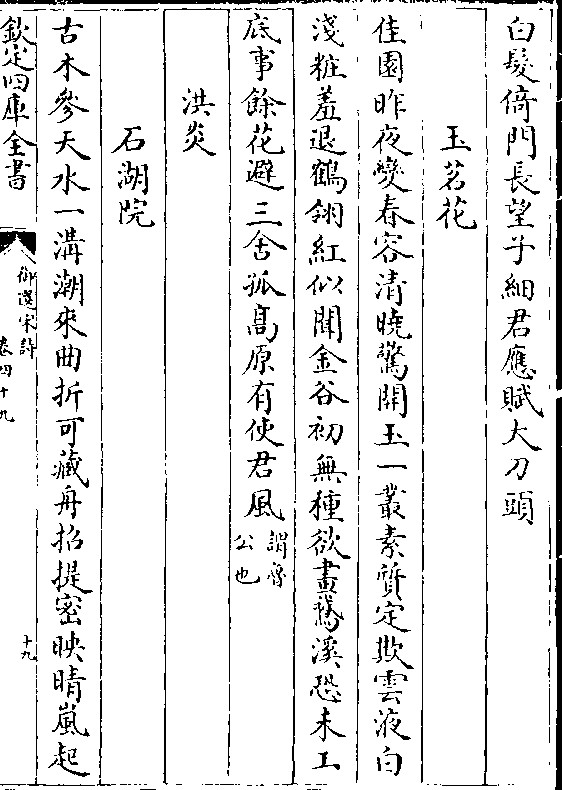 白髮倚門長望子細君應賦大刀頭
玉茗花
佳園昨夜變春容清曉驚開玉一叢素質定欺雲液白
淺粧羞退鶴翎紅似聞金谷初無種欲畫鵝溪恐未工
底事餘花避三舍孤高原有使君風謂魯
公也
洪炎
石湖院
古木參天水一溝潮來曲折可藏舟招提密映晴嵐起
欽定四庫全書
御選宋詩
卷四十九
十九